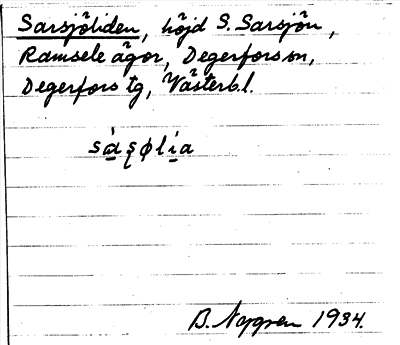 Sarsjöliden, höjd S. Sarsjön,
Ramsele ägor, Degerfors sn,
Degerfors tg, Västerb.l.
sàʂøli̱a
B. Nygren 1934.